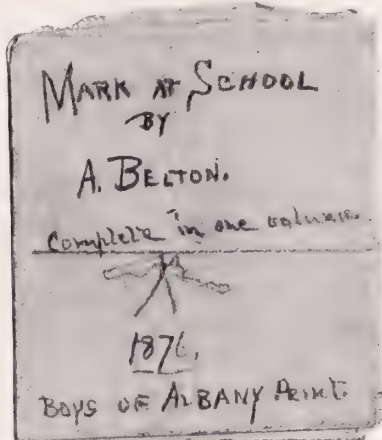 MARK AT SCHOOL
BY
A. BELTON.
Complete in one volume.
1876.
BOYS OF ALBANY PRINT.